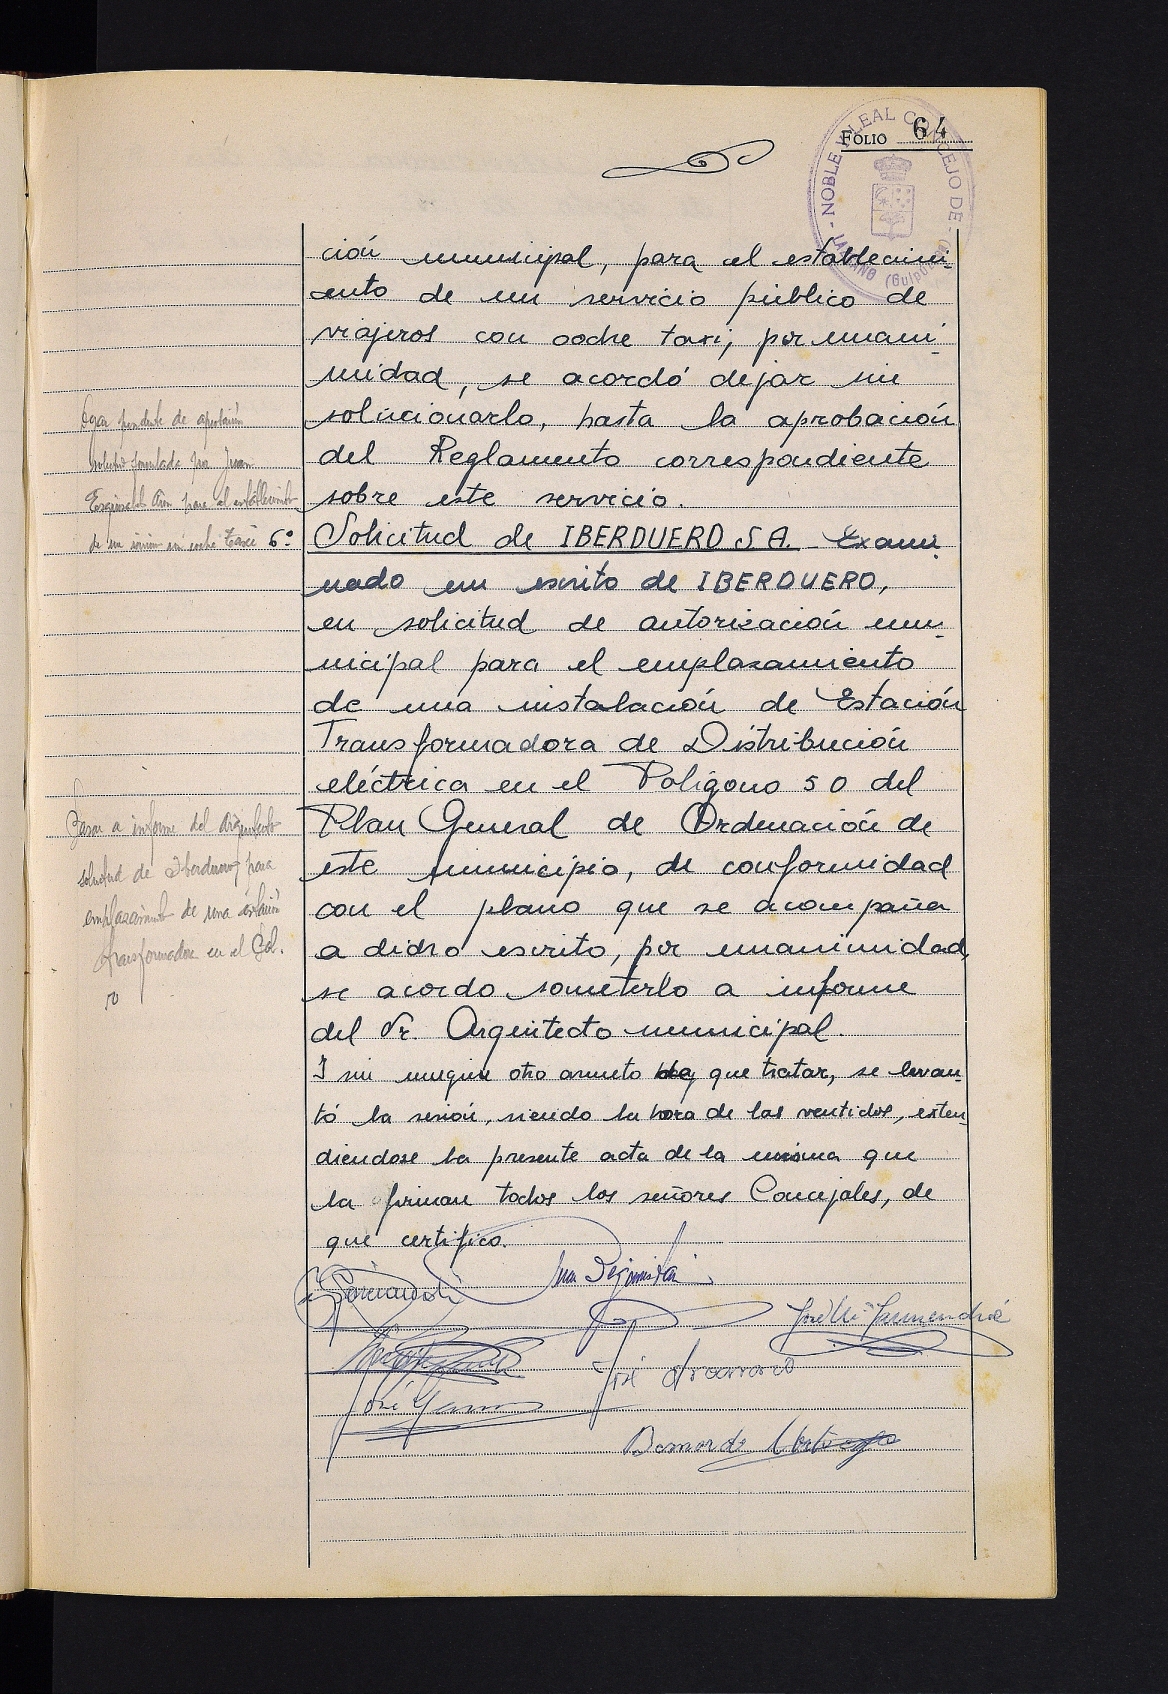 FOLIO 64
NOBLE Y LEAL CONCEJO DE
(Guipúzcoa)
ción municipal, para el establecimi-
ento de un servicio público de
viajeros con coche taxi, por unani-
midad, se acordó dejar sin
solucionarlo, hasta la aprobación
del Reglamento correspondiente
sobre este servicio.
6º Solicitud de IBERDUERO S.A. Exami-
nado un escrito de IBERDUERO,
en solicitud de autorización mu-
nicipal para el emplazamiento
de una instalación de Estación
Transformadora de Distribución
eléctrica en el Polígono 50 del
Plan General de Ordenación de
este municipio, de conformidad
con el plano que se acompaña
a dicho escrito, por unanimidad,
se acordo someterlo a informe
del Sr. Arquitecto municipal.
Y sin ningún otro asunto que tratar, se levan-
tó la sesión, siendo la hora de las ventidos, exten-
diendose la presente acta de la misma que
la firman todos los señores Concejales, de
que certifico.
pendiente de
solicitud formulada por Juan
para el
de un en coche taxi
a informe del Arquitecto
solicitud de Iberduero para
emplazamiento de una estación
transformadora en el Pol.
50
José
José